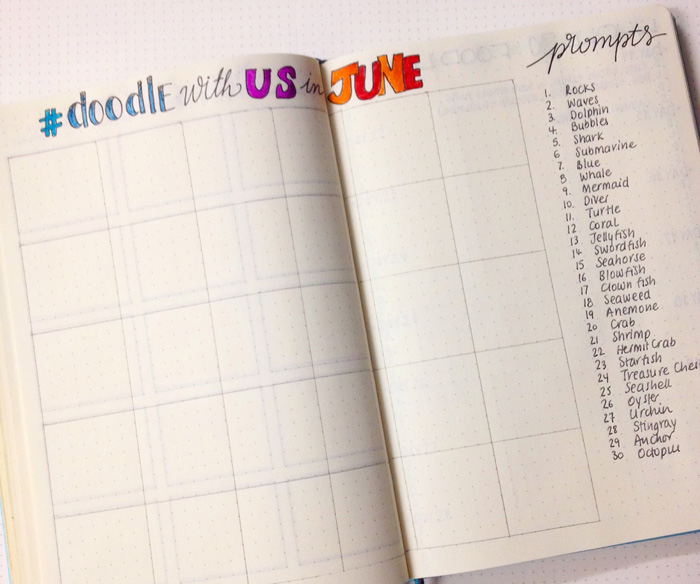 #doodle with US in JUNE
prompts
1. Rocks
2. Waves
3. Dolphin
4. Bubbles
5. Shark
6 Submarine
7. Blue
8 Whale
9. Mermaid
10. Diver
11. Turtle
12 Coral
13 Jellyfish
14. Swordfish
15 Seahorse
16 Blowfish
17 Clown fish
18 Seaweed
19 Anemone
20 Crab
21 Shrimp
22 Hermit Crab
23 Starfish
24 Treasure Ches
25 Seashell
26 Oyster
27 Urchin
28 Stingray
29 Anchor
30 Octopus